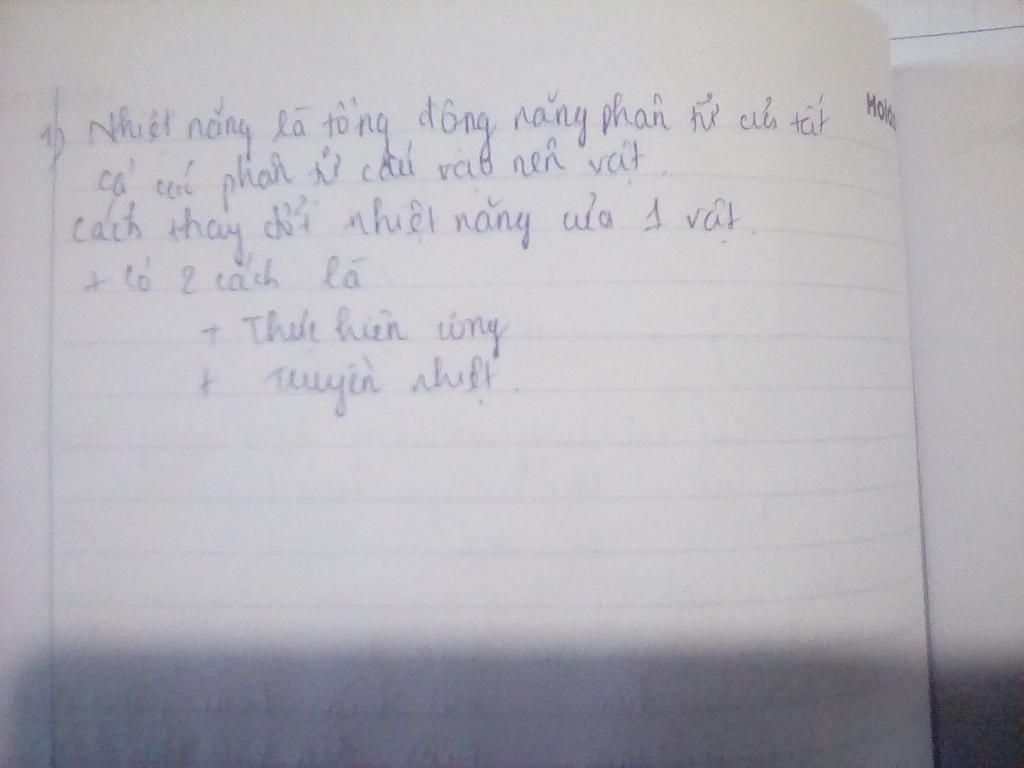 1) Nhiệt năng là tổng động năng phân tử của tất
cả các phân tử cấu tạo nên vật.
cách thay đổi nhiệt năng của 1 vật.
+ Có 2 cách là
+ Thực hiện công
+ Truyền nhiệt.